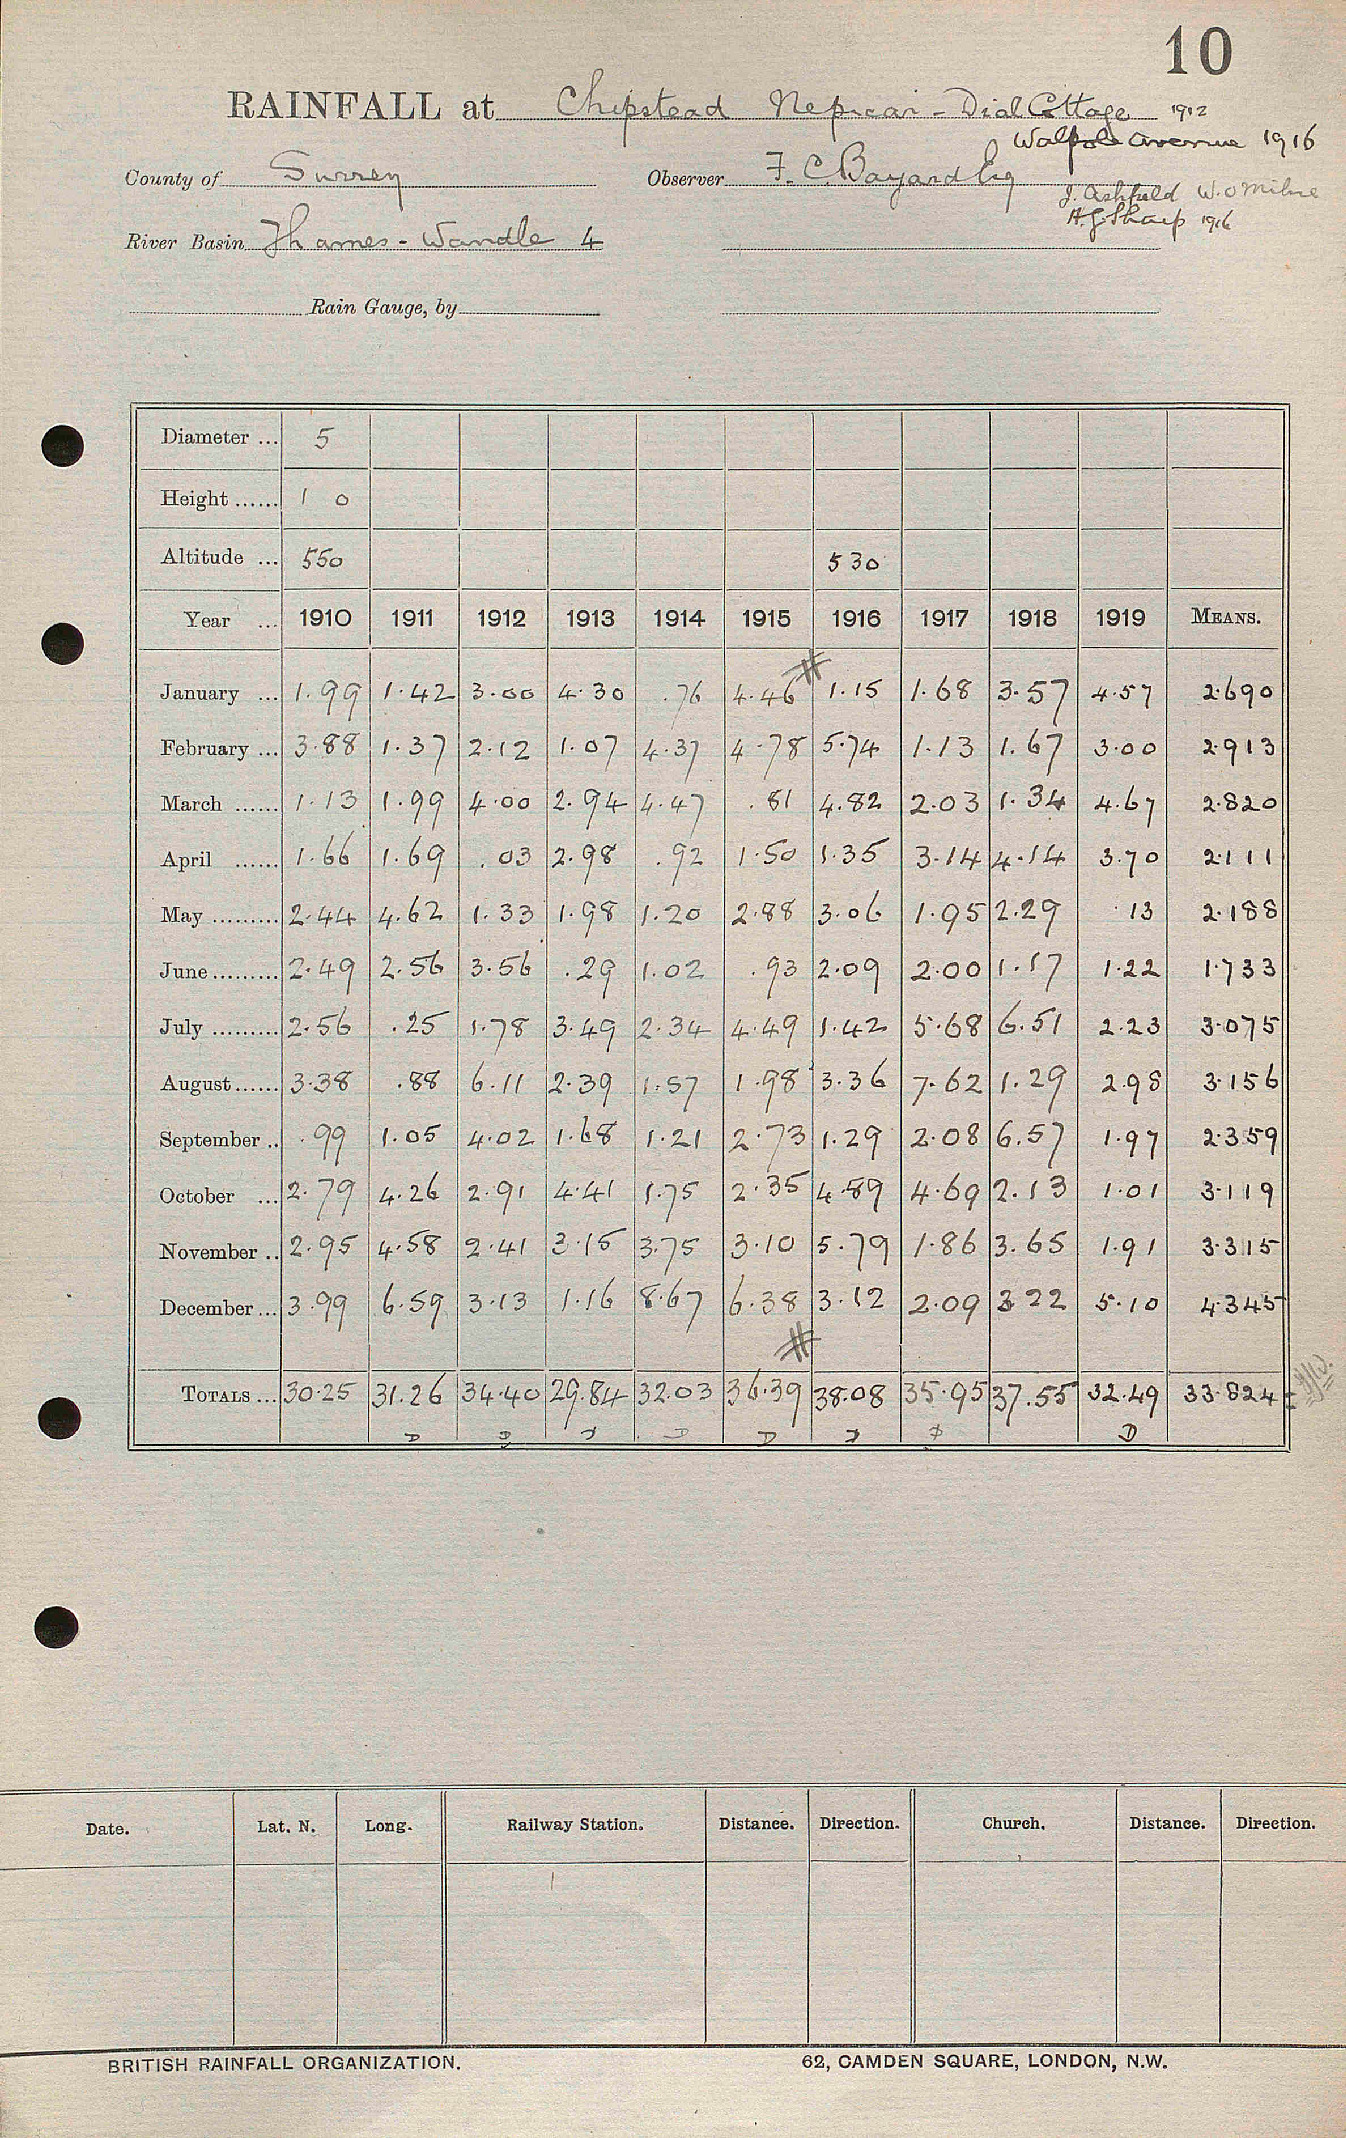 10
RAINFALL at Chipstead Nepicar - Dial Cottage 1912
Walpole Avenue 1916
County of Surrey Observer F. C. Bayard Esq
J. Ashfield W. O Milne
River Basin Thames - Wandle 4 A.G. Sharp 1916
Rain Gauge, by
Diameter ... 5
Height ...... 1 0
Altitude ... 550 530
Year ... 1910 1911 1912 1913 1914 1915 1916 1917 1918 1919 MEANS.
January ... 1.99 1.42 3.00 4.30 .76 4.46 # 1.15 1.68 3.57 4.57 2.690
February ... 3.88 1.37 2.12 1.07 4.37 4.78 5.74 1.13 1.67 3.00 2.913
March ...... 1.13 1.99 4.00 2.94 4.47 .81 4.82 2.03 1.34 4.67 2.820
April ...... 1.66 1.69 .03 2.98 .92 1.50 1.35 3.14 4.14 3.70 2.111
May ......... 2.44 4.62 1.33 1.98 1.20 2.88 3.06 1.95 2.29 .13 2.188
June ......... 2.49 2.56 3.56 .29 1.02 .93 2.09 2.00 1.17 1.22 1.733
July ......... 2.56 .25 1.78 3.49 2.34 4.49 1.42 5.68 6.51 2.23 3.075
August ...... 3.38 .88 6.11 2.39 1.57 1.98 3.36 7.62 1.29 2.98 3.156
September .. .99 1.05 4.02 1.68 1.21 2.73 1.29 2.08 6.57 1.97 2.359
October ... 2.79 4.26 2.91 4.41 1.75 2.35 4.89 4.69 2.13 1.01 3.119
November .. 2.95 4.58 2.41 3.15 3.75 3.10 5.79 1.86 3.65 1.91 3.315
December ... 3.99 6.59 3.13 1.16 8.67 6.38 3.12 2.09 3 22 5.10 4.345
#
TOTALS ... 30.25 31.26 34.40 29.84 32.03 36.39 38.08 35.95 37.55 32.49 33.824
D D D D D D D D
Date. Lat. N. Long. Railway Station. Distance. Direction. Church. Distance. Direction.
BRITISH RAINFALL ORGANIZATION. 62, CAMDEN SQUARE, LONDON, N.W.